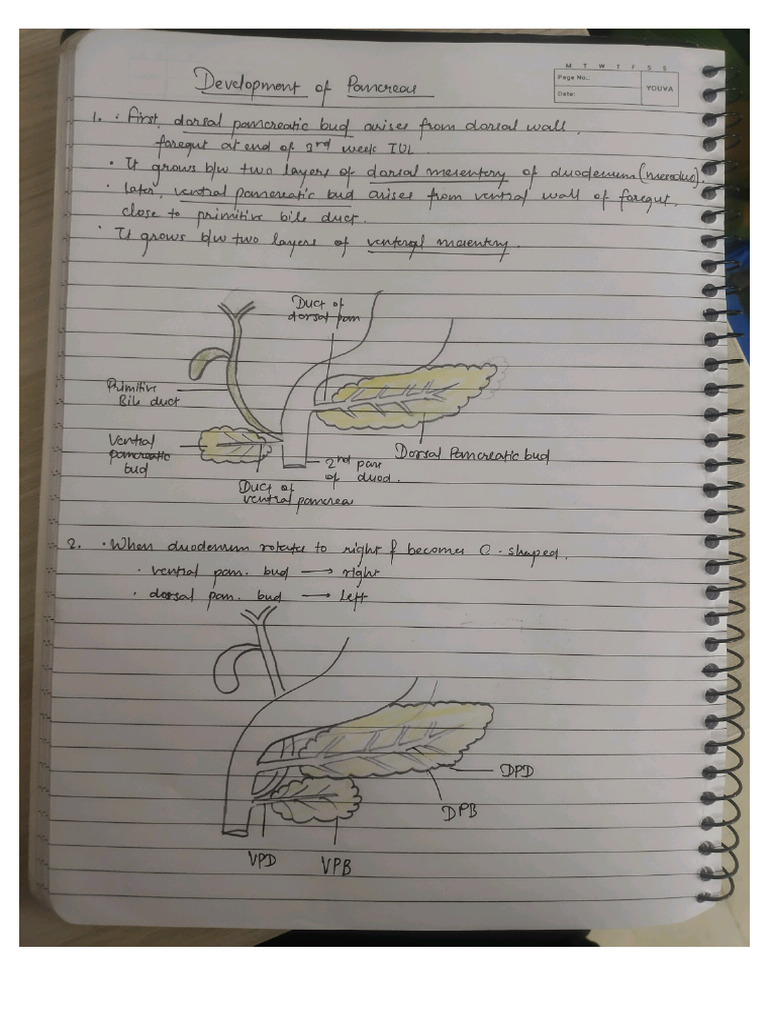 Development of Pancreas
M T W T F S S
Page No.:
Date:
YOUVA
1. · First, dorsal pancreatic bud arises from dorsal wall,
foregut at end of 3rd week IUL
· It grows b/w two layers of dorsal mesentery of duodenum (mesoduo).
· Later, ventral pancreatic bud arises from ventral wall of foregut,
close to primitive bile duct.
· It grows b/w two layers of ventral mesentery.
Duct of
dorsal pan
Primitive
Bile duct
Ventral
pancreatic
bud
Dorsal Pancreatic bud
2nd part
of duod.
Duct of
ventral pancrea
2. · When duodenum rotates to right & becomes C-shaped.
· ventral pan. bud → right
· dorsal pan. bud → Left
DPD
DPB
VPD
VPB